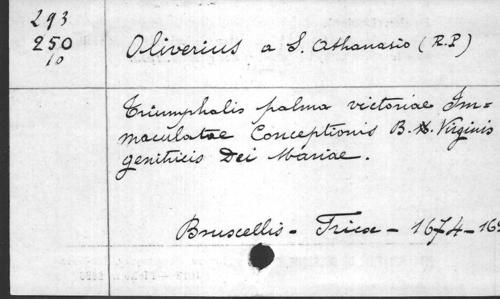 293
250
10
Oliverius a S. Athanasio (R.P)
Triumphalis palma victoriae Im-
maculatae Conceptionis B. Virginis
genitricis Dei Mariae.
Bruxellis - Fricx - 1674-